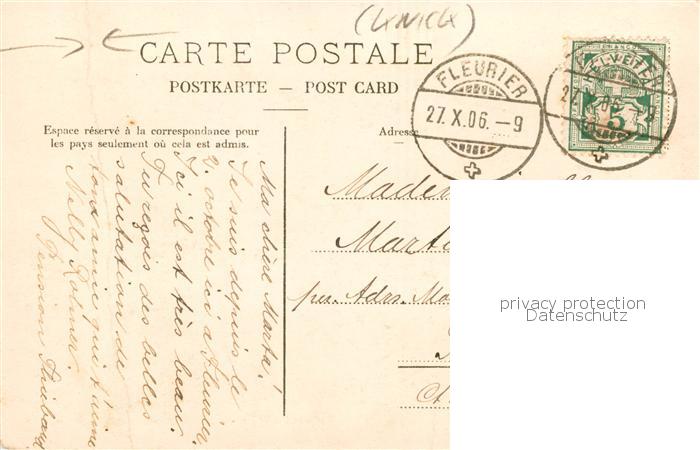 CARTE POSTALE
POSTKARTE — POST CARD
Espace réservé à la correspondance pour
les pays seulement où cela est admis.
Adresse
FLEURIER
27. X. 06. — 9
HELVETIA
5
Ma chère Marta!
Je suis depuis le
2. octobre ici a Fleurier
Ici il est très beau.
Tu reçois des belles
salutation de
ton amie qui t'aime
Nelly Rohner.
Pension Thiébaud
Madem
Mart
per. Adrs. Mo
privacy protection
Datenschutz